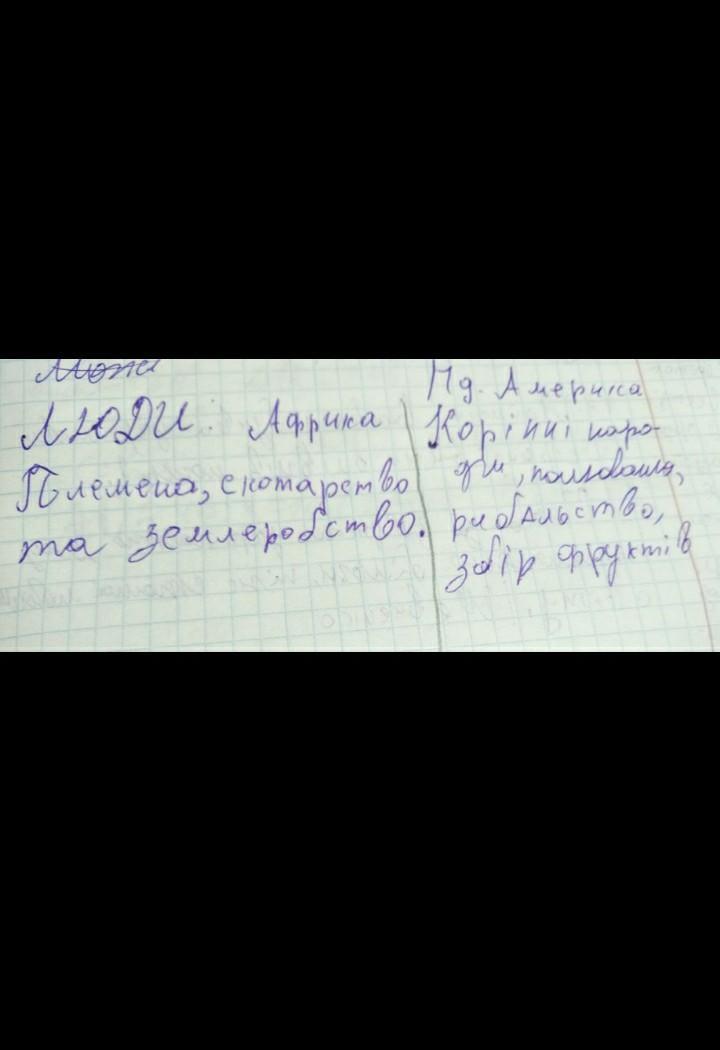 Пд. Америка
ЛЮДИ: Африка
Корінні наро-
Племена, скотарство
ди, полювання,
та землеробство.
рибальство,
збір фруктів